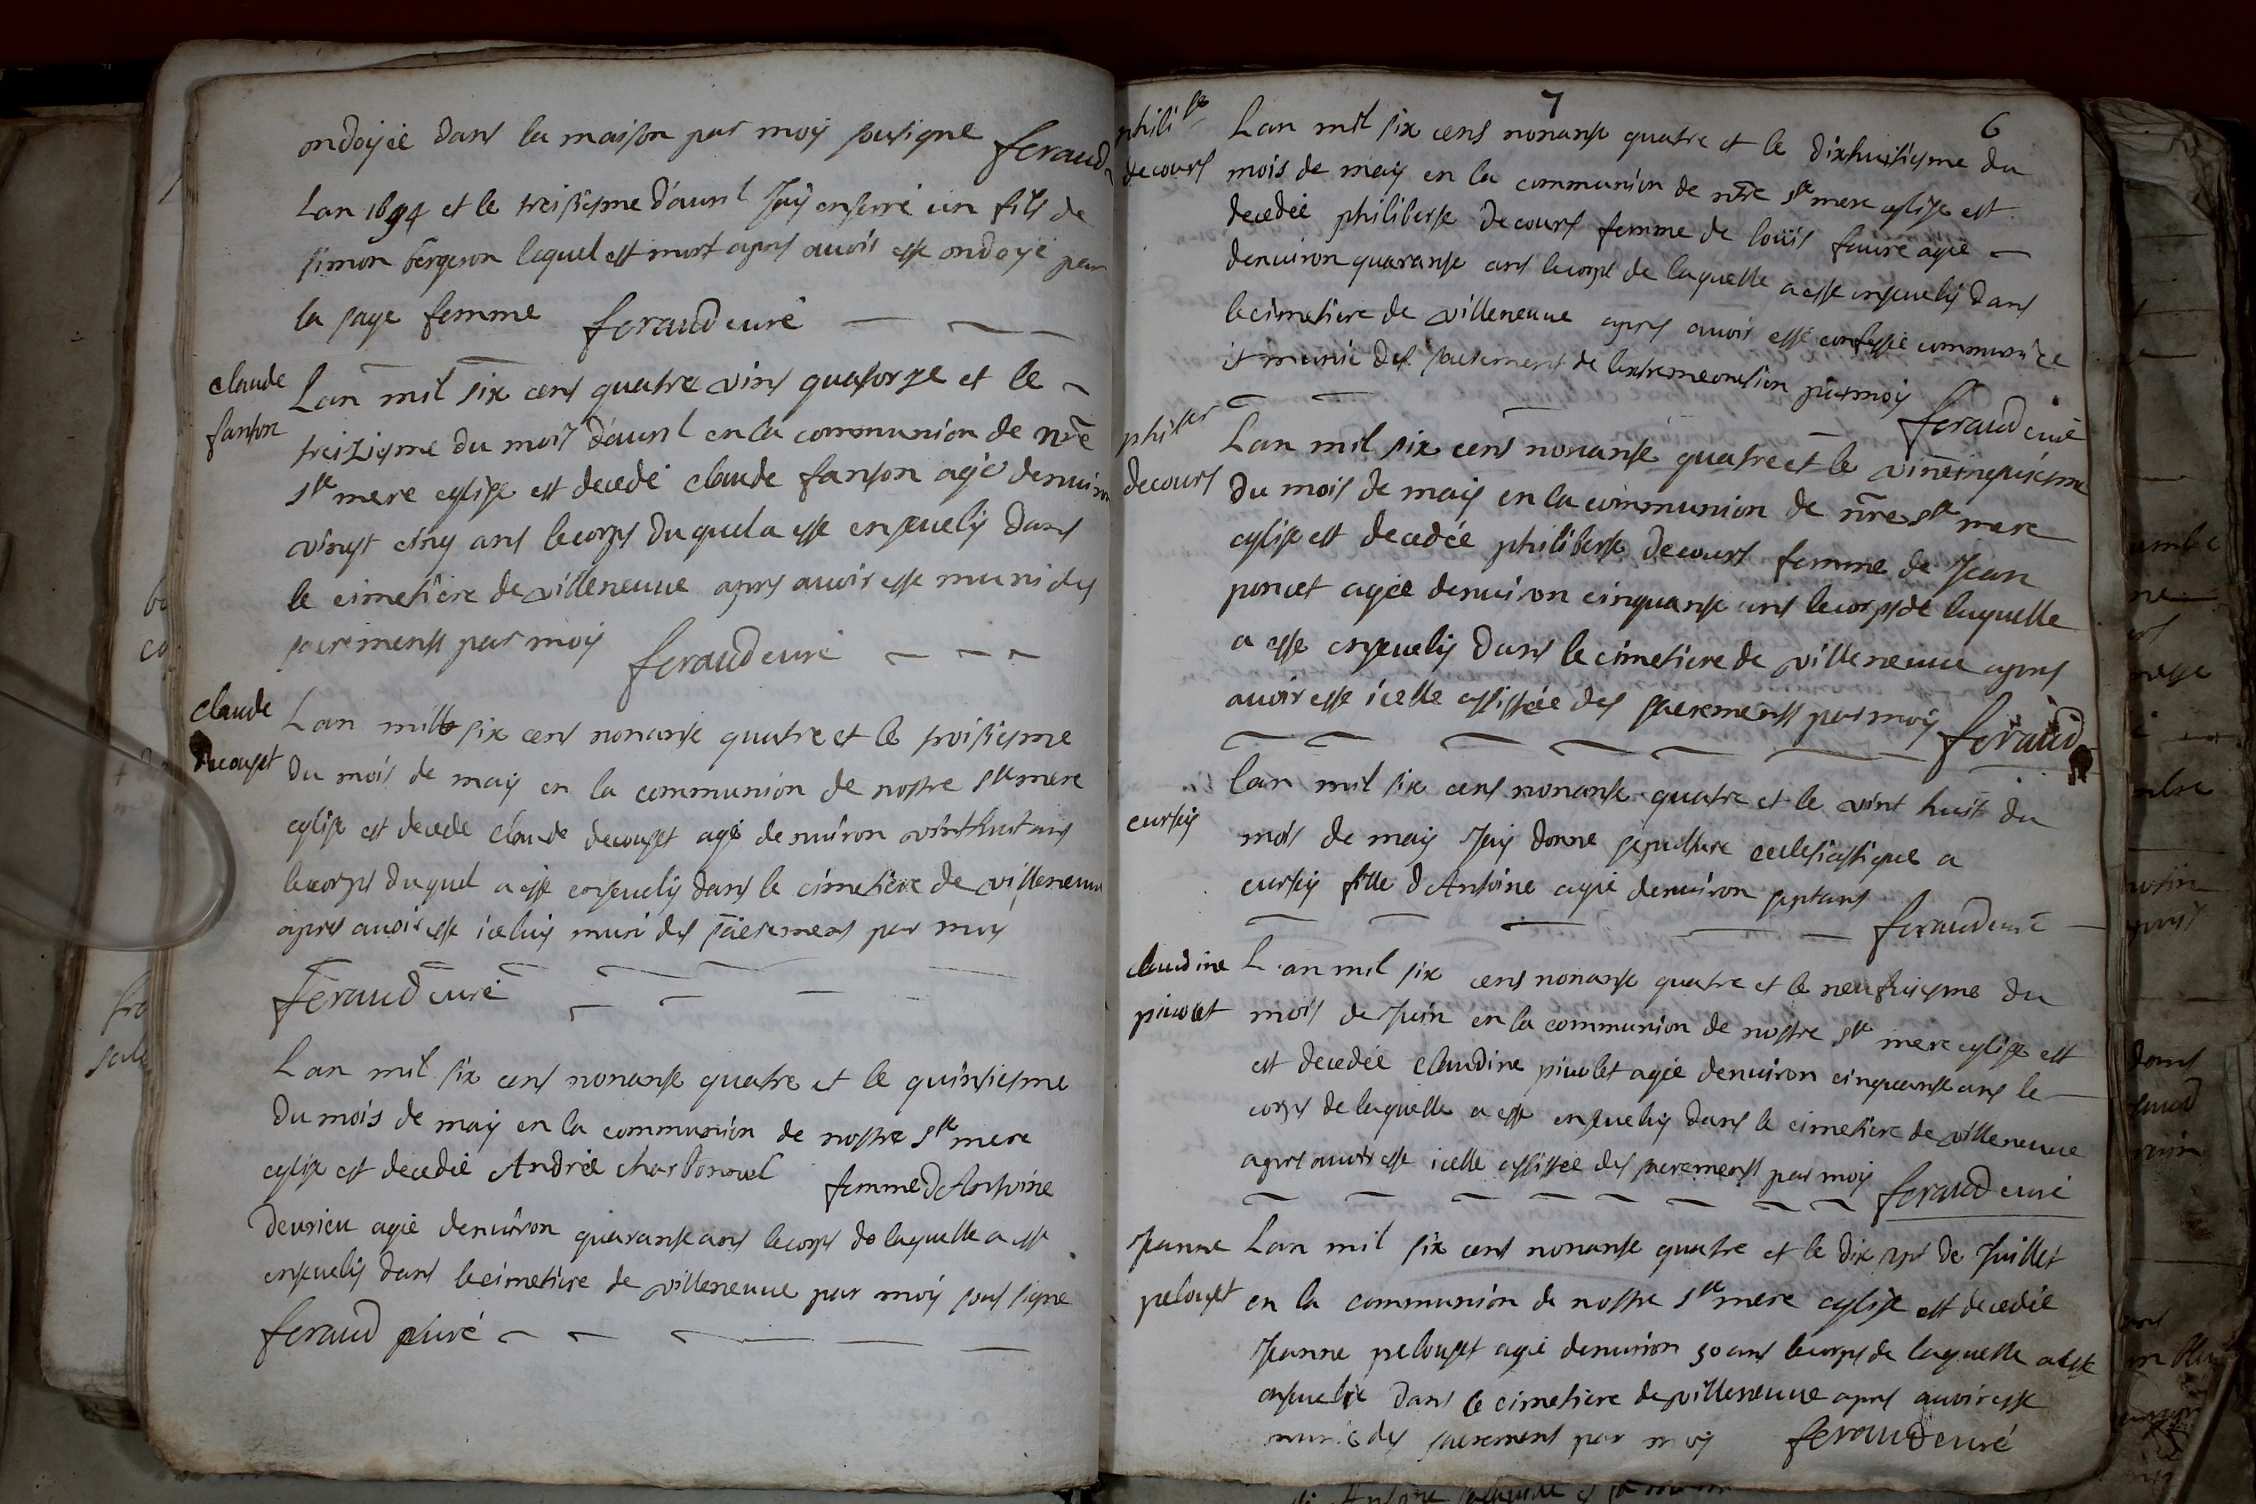 ondoyée dans la maison par moy sousigne feraud
Lan 1694 et le treisiesme d'auril Jay enterré un fils de
simon bergeron lequel est mort apres auoir esté ondoyé par
la sage femme feraud curé
claude
fanton
Lan mil six cens quatre vins quatorze et le
treiziesme du mois d'auril en la communion de nre
ste mere eglise est decedé claude fanton agé denuiron
vingt cinq ans le corps du quel a esté enseuely dans
le cimetiere de villeneuue apres auoir esté muni des
sacrements par moy feraud curé
claude
decouset
Lan mille six cens nonante quatre et le troisiesme
du mois de may en la communion de nostre ste mere
eglise est decede claude decouset agé denuiron vint huit ans
le corps duquel a esté enseuely dans le cimetiere de villeneuue
apres auoir esté iceluy muni des sacremens par moy
feraud curé
Lan mil six cens nonante quatre et le quinsiesme
du mois de may en la communion de nostre ste mere
eglise est decedée Andrée charbonnel femme d'Antoine
deurieu agée denuiron quarante ans le corps de laquelle a esté
enseuely dans le cimetiere de villeneuue par moy sous signe
feraud curé
7
6
philiste
decours
Lan mil six cens nonante quatre et le dixhuitiesme du
mois de may en la communion de nre ste mere eglise est
decedée philiberte decours femme de louïs faure agée
denuiron quarante ans le corps de laquelle a esté enseuely dans
le cimetiere de villeneuue apres auoir esté confessée communiée
et munie des sacrement de lextremeonction par moy
feraud curé
philter
decours
Lan mil six cens nonante quatre et le vincinquiesme
du mois de may en la communion de nre ste mere
eglise est decedée philiberte decours femme de Jean
poncet agée denuiron cinquante ans le corps de laquelle
a esté enseuely dans le cimetiere de villeneuue apres
auoir esté icelle assistée des sacrements par moy feraud
cursiy
Lan mil six cens nonante quatre et le vint huit du
mois de may Jay donne sepulture ecclesiastique a
cursiy fille d'Antoine agée denuiron sept ans
feraud curé
claudine
piuolet
Lan mil six cens nonante quatre et le neufuiesme du
mois de Juin en la communion de nostre ste mere eglise est
est decedée claudine piuolet agée denuiron cinquante ans le
corps de laquelle a esté enseuely dans le cimetiere de villeneuue
apres auoir esté icelle assistée des sacrements par moy feraud curé
Jeanne
pelouset
Lan mil six cens nonante quatre et le dix sept de Juillet
en la communion de nostre ste mere eglise est decedée
Jeanne pelouset agée denuiron 50 ans le corps de laquelle a esté
enseuelie dans le cimetiere de villeneuue apres auoir esté
munie des sacrement par moy feraud curé